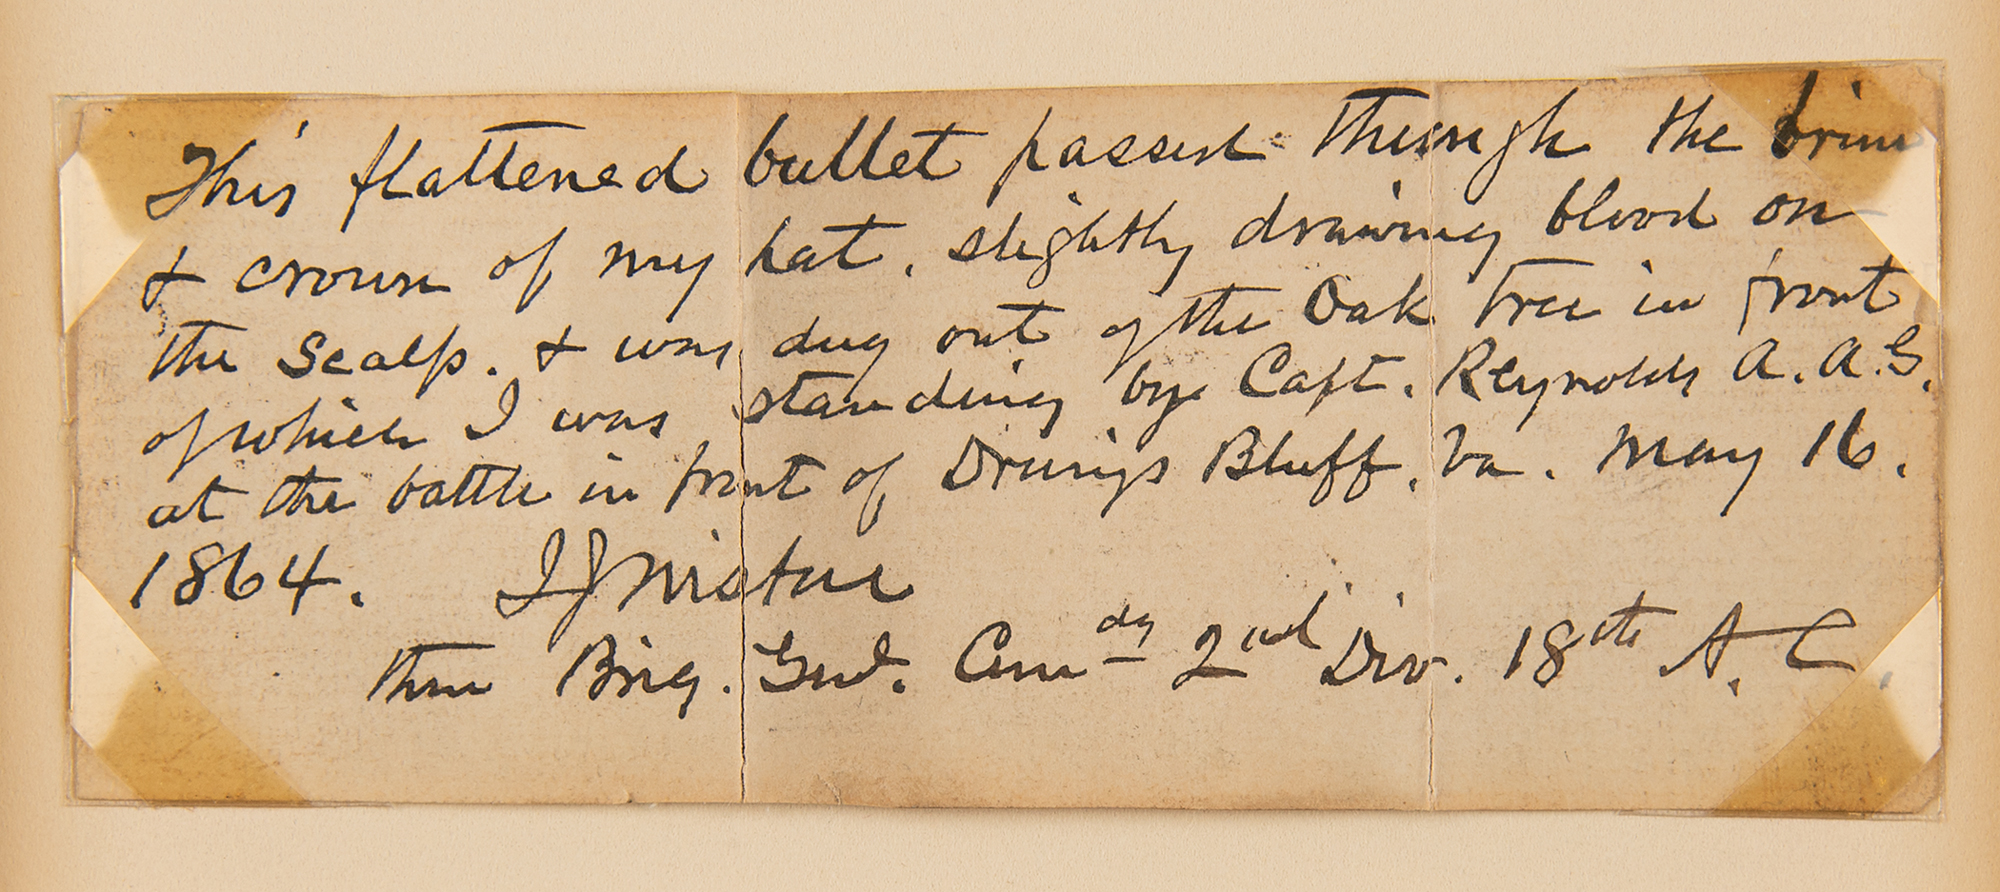 This flattened bullet passed through the brim
& crown of my hat, slightly drawing blood on
the Scalp. & was dug out of the Oak tree in front
of which I was standing by Capt. Reynolds A.A.G.
at the battle in front of Drurys Bluff, Va. May 16.
1864. I J Wistar
then Brig. Genl. Comdg 2nd Div. 18th A.C.